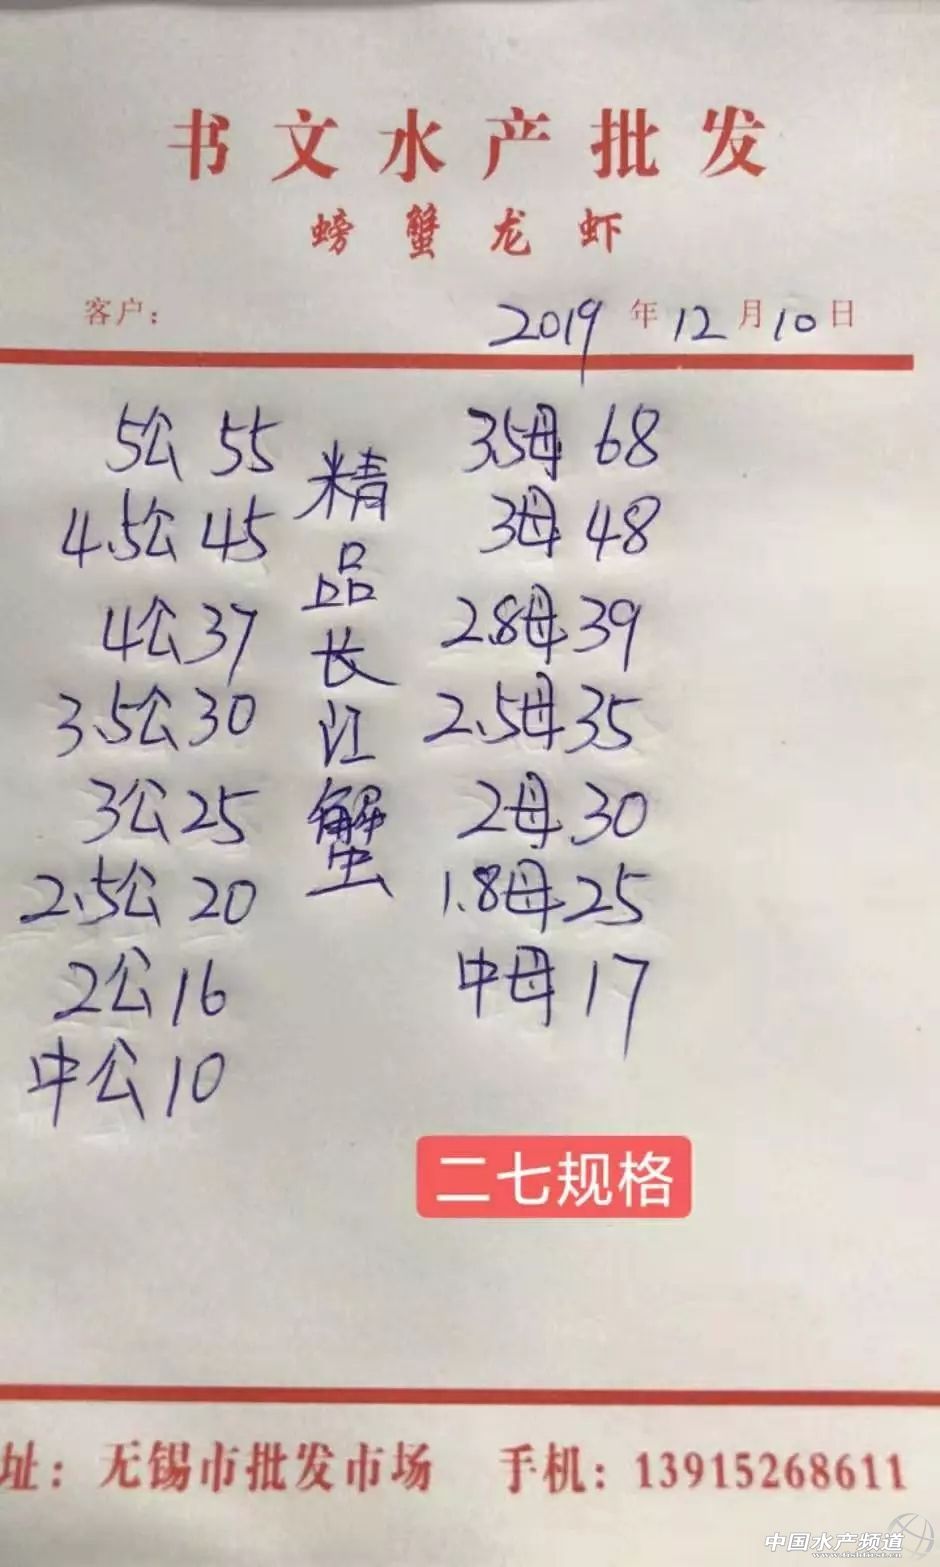 书文水产批发
螃蟹龙虾
客户： 2019年12月10日
5公 55
4.5公 45
4公 37
3.5公 30
3公 25
2.5公 20
2公 16
中公 10
精品长江蟹
3.5母 68
3母 48
2.8母 39
2.5母 35
2母 30
1.8母 25
中母 17
二七规格
址：无锡市批发市场 手机：13915268611
中国水产频道
www.fishfirst.cn